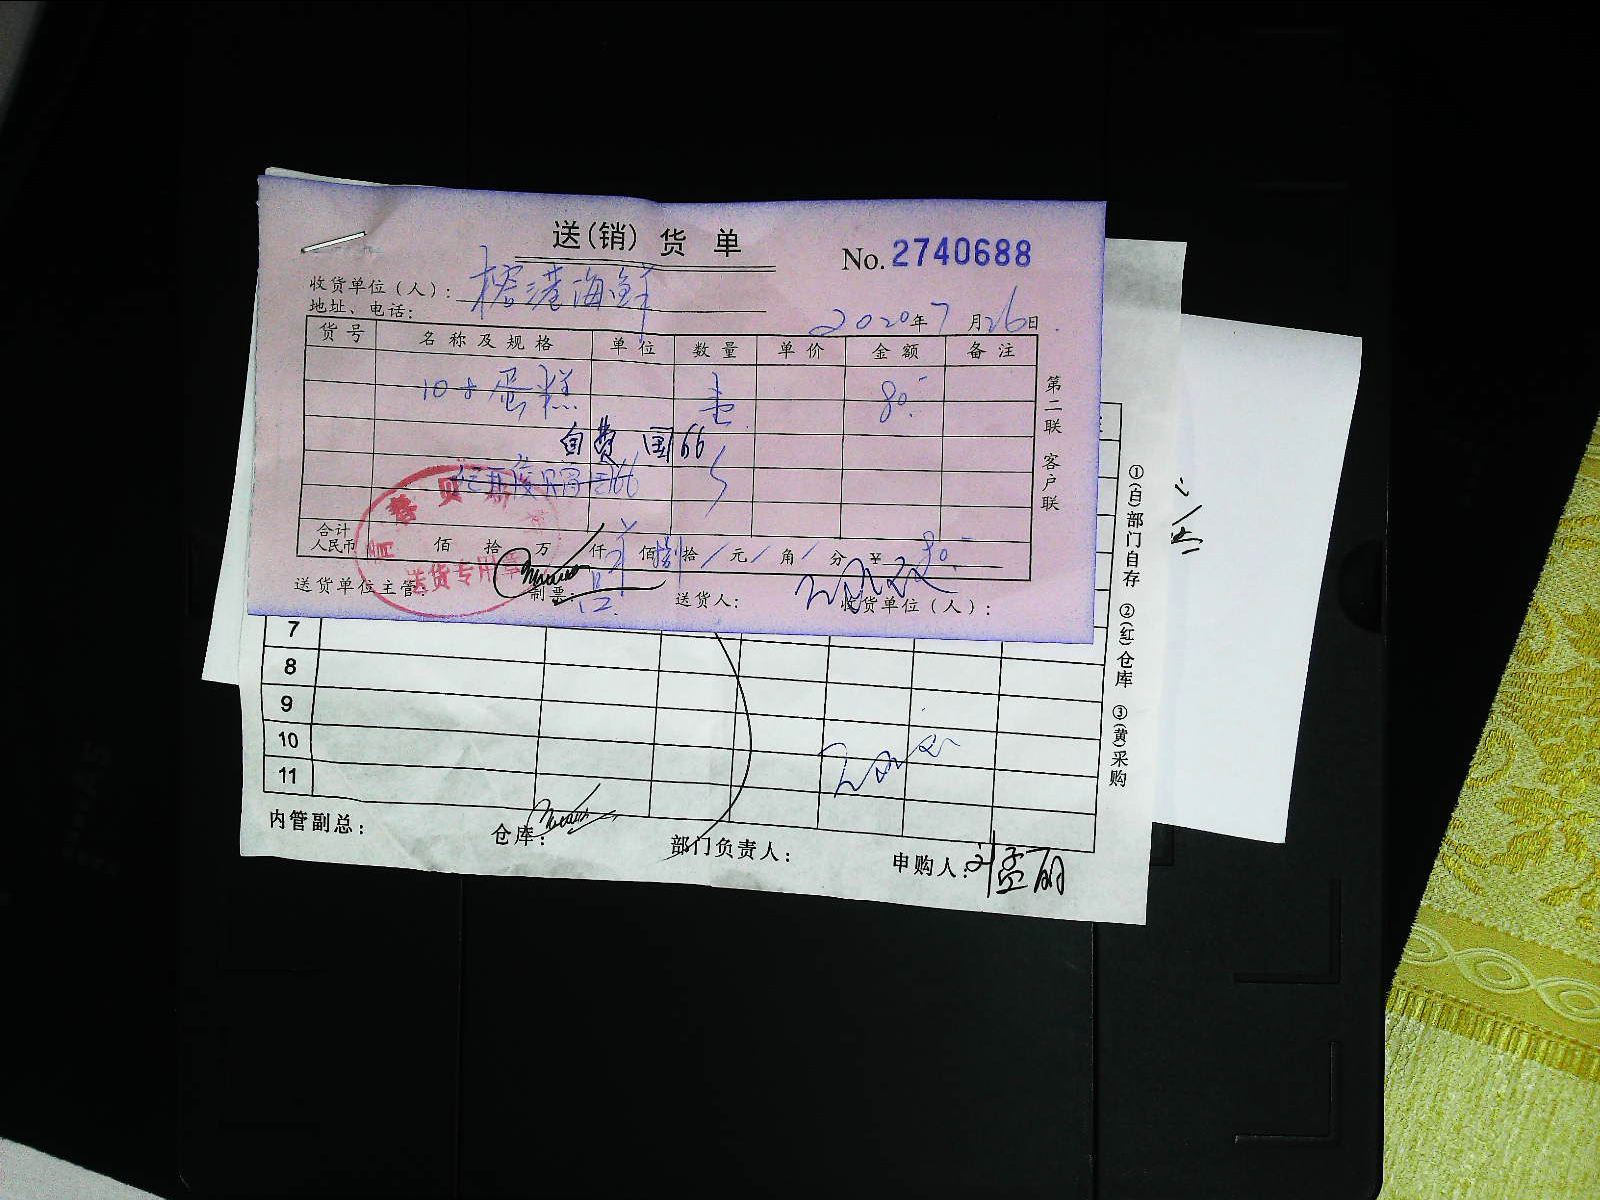 送(销)货单
No. 2740688
收货单位(人): 榕港海鲜
地址、电话:
2020年7月26日
货号 名称及规格 单位 数量 单价 金额 备注
10寸蛋糕 壹 80.-
自费 国66
国66
合计
人民币 佰 拾 万 仟 佰 捌 拾 / 元 / 角 / 分 ¥ 80.-
送货专用章
送货单位主管: 制票: 送货人: 收货单位(人):
第二联 客户联
7
8
9
10
11
内管副总: 仓库: 部门负责人: 申购人: 刘孟丽
①(白)部门自存 ②(红)仓库 ③(黄)采购